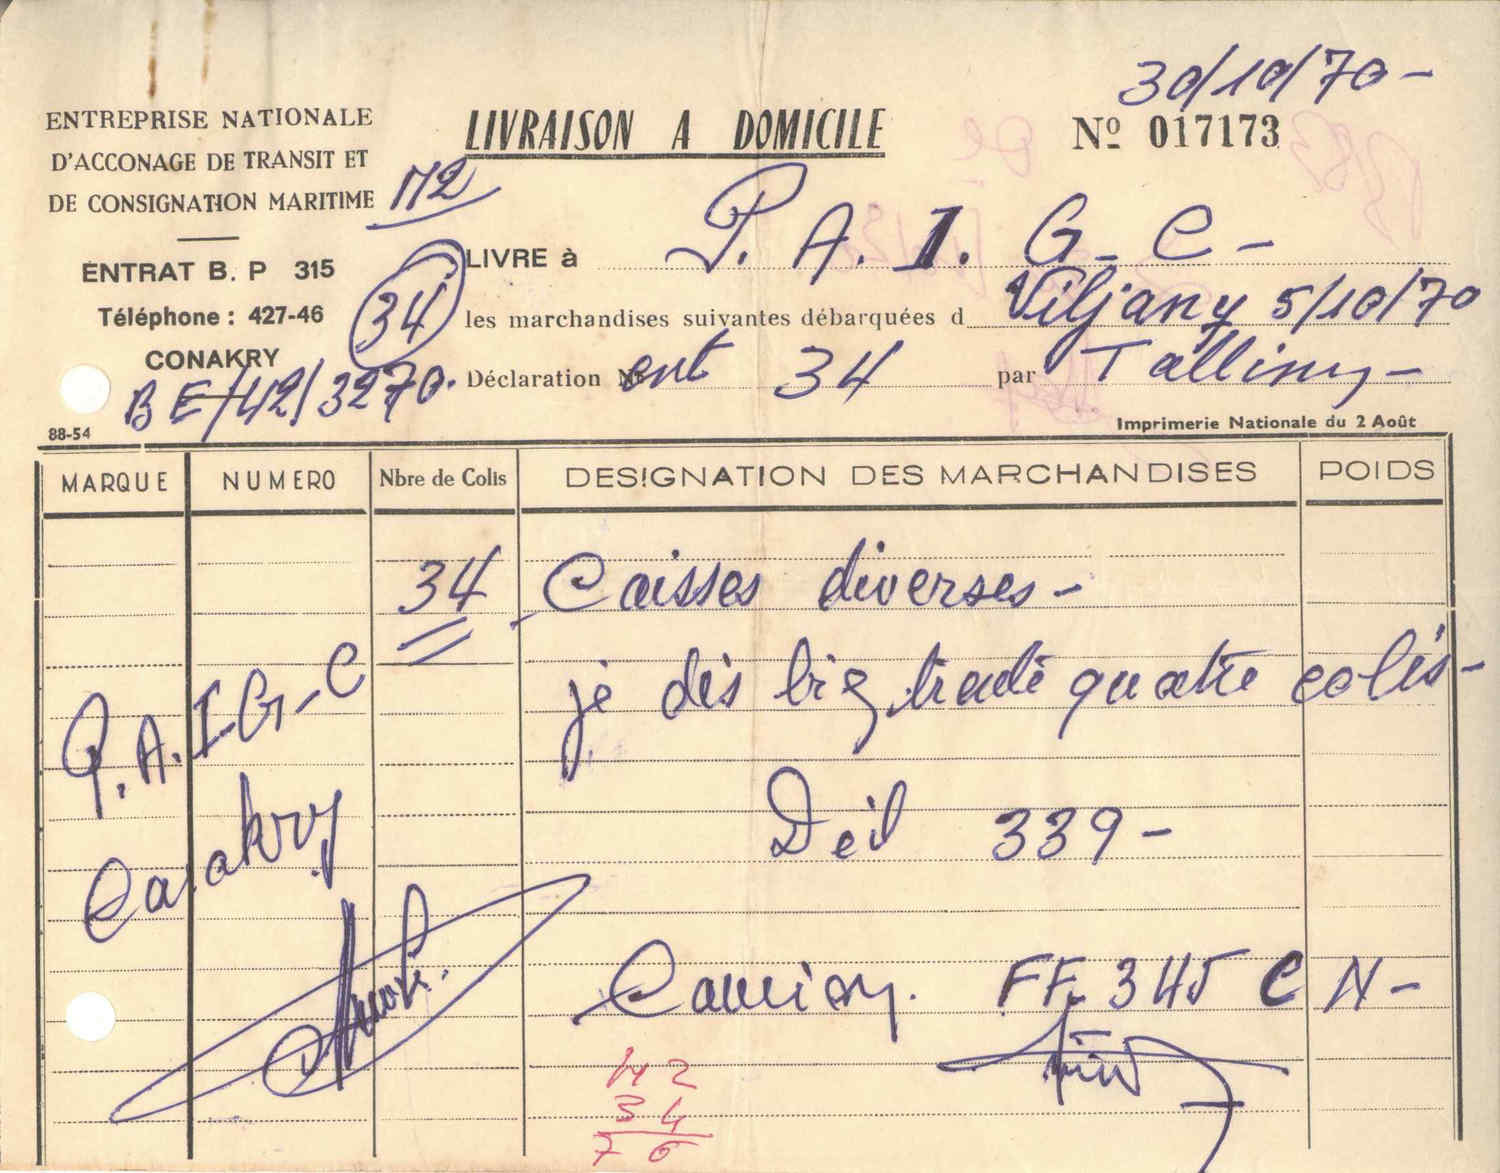 30/10/70 -
ENTREPRISE NATIONALE
D'ACCONAGE DE TRANSIT ET
DE CONSIGNATION MARITIME
LIVRAISON A DOMICILE
Nº 017173
ENTRAT B. P 315
Téléphone : 427-46
CONAKRY
34
BE/42/3270.
88-54
LIVRE à P. A. I. G - C -
les marchandises suivantes débarquées d Viljany 5/10/70
Déclaration Nº ent 34 par Tallinn -
Imprimerie Nationale du 2 Août
MARQUE NUMERO Nbre de Colis DESIGNATION DES MARCHANDISES POIDS
34 Caisses diverses -
je dis trente quatre colis -
P. A. I-G-C
Conakry
339 -
Camion. FF. 345 C N -
42
34
76